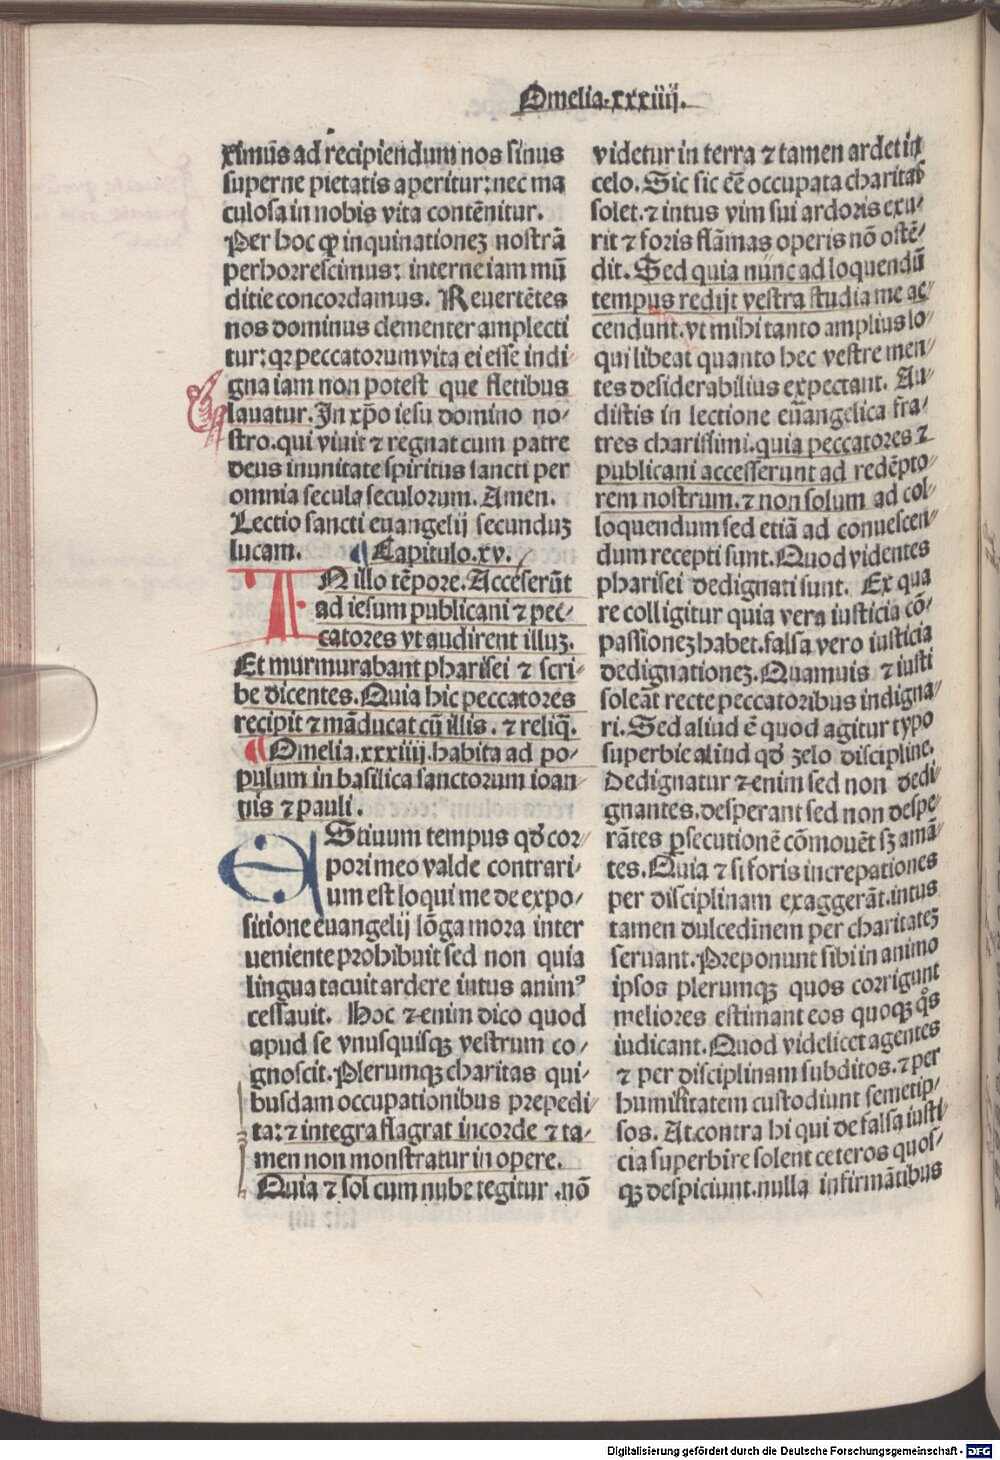 Omelia.xxxiiij.
ximūs ad recipiendum nos sinus
superne pietatis aperitur: nec ma
culosa in nobis vita contēnitur.
Per hoc qꝙ inquinationeꝫ nostrā
perhorrescimus: interne iam mū
ditie concordamus. Reuertētes
nos dominus clementer amplecti
tur: qꝛ peccatorum vita ei esse indi
gna iam non potest que fletibus
lauatur. In xp̄o iesu domino no⸗
stro. qui viuit ⁊ regnat cum patre
deus in unitate spiritus sancti per
omnia secula seculorum. Amen.
Lectio sancti euangelij secunduꝫ
lucam. ¶ Capitulo.xv.
IN illo tēpore. Accesserūt
ad iesum publicani ⁊ pec⸗
catores vt audirent illuꝫ.
Et murmurabant pharisei ⁊ scri⸗
be dicentes. Quia hic peccatores
recipit ⁊ māducat cū illis. ⁊ reliq̄.
¶ Omelia.xxxiiij. habita ad po⸗
pulum in basilica sanctorum ioan
nis ⁊ pauli.
EStiuum tempus qd̓ cor⸗
pori meo valde contrari⸗
um est loqui me de expo⸗
sitione euangelij lōga mora inter
ueniente prohibuit sed non quia
lingua tacuit ardere intus animꝰ
cessauit. Hoc ⁊enim dico quod
apud se vnusquisqꝫ vestrum co⸗
gnoscit. Plerumqꝫ charitas qui⸗
busdam occupationibus prepedi⸗
ta: ⁊ integra flagrat in corde ⁊ ta⸗
men non monstratur in opere.
Quia ⁊ sol cum nube tegitur. nō
videtur in terra ⁊ tamen ardet in
celo. Sic sic eē occupata charitas
solet. ⁊ intus vim sui ardoris exu⸗
rit ⁊ foris flāmas operis nō ostē⸗
dit. Sed quia nunc ad loquendū
tempus redijt vestra studia me ac⸗
cendunt. vt mihi tanto amplius lo⸗
qui libeat quanto hec vestre men⸗
tes desiderabilius expectant. Au⸗
distis in lectione euangelica fra⸗
tres charissimi. quia peccatores ⁊
publicani accesserunt ad redēpto⸗
rem nostrum. ⁊ non solum ad col⸗
loquendum sed etiā ad conuescen⸗
dum recepti sunt. Quod videntes
pharisei dedignati sunt. Ex qua
re colligitur quia vera iusticia cō⸗
passioneꝫ habet. falsa vero iusticia
dedignationeꝫ. Quamuis ⁊ iusti
soleāt recte peccatoribus indigna⸗
ri. Sed aliud ē quod agitur typo
superbie aliud qd̓ zelo discipline.
Dedignatur ⁊enim sed non dedi
gnantes. desperant sed non despe⸗
rātes ꝑsecutionē cōmouēt sꝫ amā⸗
tes. Quia ⁊ si foris increpationes
per disciplinam exaggerāt. intus
tamen dulcedinem per charitateꝫ
seruant. Preponunt sibi in animo
ipsos plerumqꝫ quos corrigunt
meliores estimant eos quoqꝫ qͦs
iudicant. Quod videlicet agentes
⁊ per disciplinam subditos. ⁊ per
humilitatem custodiunt semetip⸗
sos. At contra hi qui de falsa iusti⸗
cia superbire solent ceteros quos⸗
qꝫ despiciunt. nulla infirmātibus
Digitalisierung gefördert durch die Deutsche Forschungsgemeinschaft - DFG